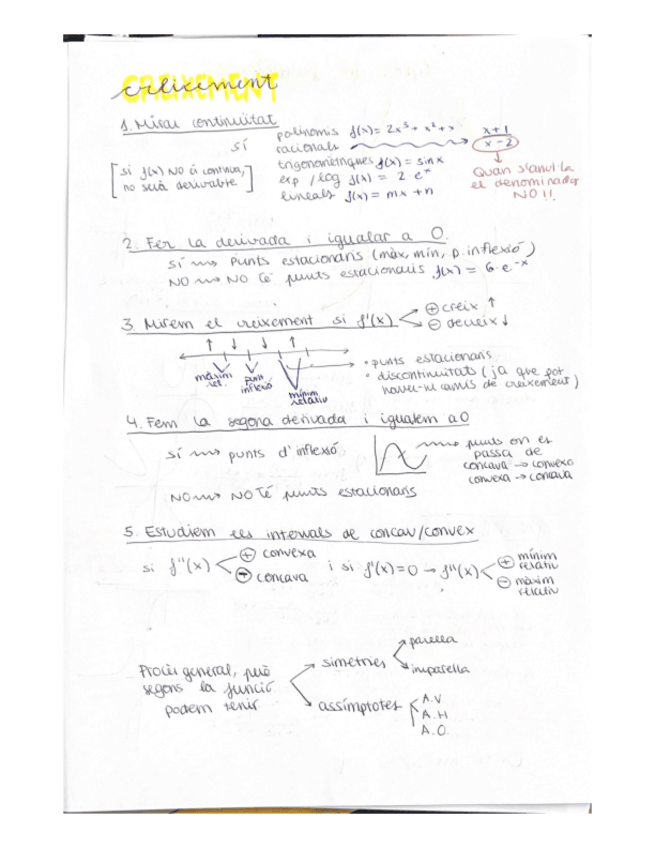 CREIXEMENT
creixement
1. Mirar continuïtat
SÍ
polinomis f(x) = 2x³ + x² + x
racionals
x + 1
x - 2
trigonomètriques f(x) = sin x
exp / log f(x) = 2·eˣ
lineals f(x) = mx + n
[si f(x) NO és contínua,
no serà derivable]
Quan s'anul·la
el denominador
NO!!
2. Fer la derivada i igualar a 0.
SÍ → Punts estacionaris (màx, mín, p. inflexió)
NO → NO TÉ punts estacionaris f(x) = 6·e⁻ˣ
3. Mirem el creixement si f'(x)
⊕ creix ↑
⊖ decreix ↓
↑ ↓ ↓ ↑
màxim
rel.
punt
inflexió
mínim
relatiu
• punts estacionaris
• discontinuïtats (ja que pot
haver-hi canvis de creixement)
4. Fem la segona derivada i igualem a 0
SÍ → punts d'inflexió
→ punts on es
passa de
concava → convexa
convexa → concava
NO → NO TÉ punts estacionaris
5. Estudiem els intervals de concav/convex
si f''(x)
⊕ convexa
⊖ concava
i si f'(x) = 0 → f''(x)
⊕ mínim
relatiu
⊖ màxim
relatiu
Procés general, però
segons la funció
podem tenir
simetries
parella
imparella
assímptotes
A.V
A.H
A.O.